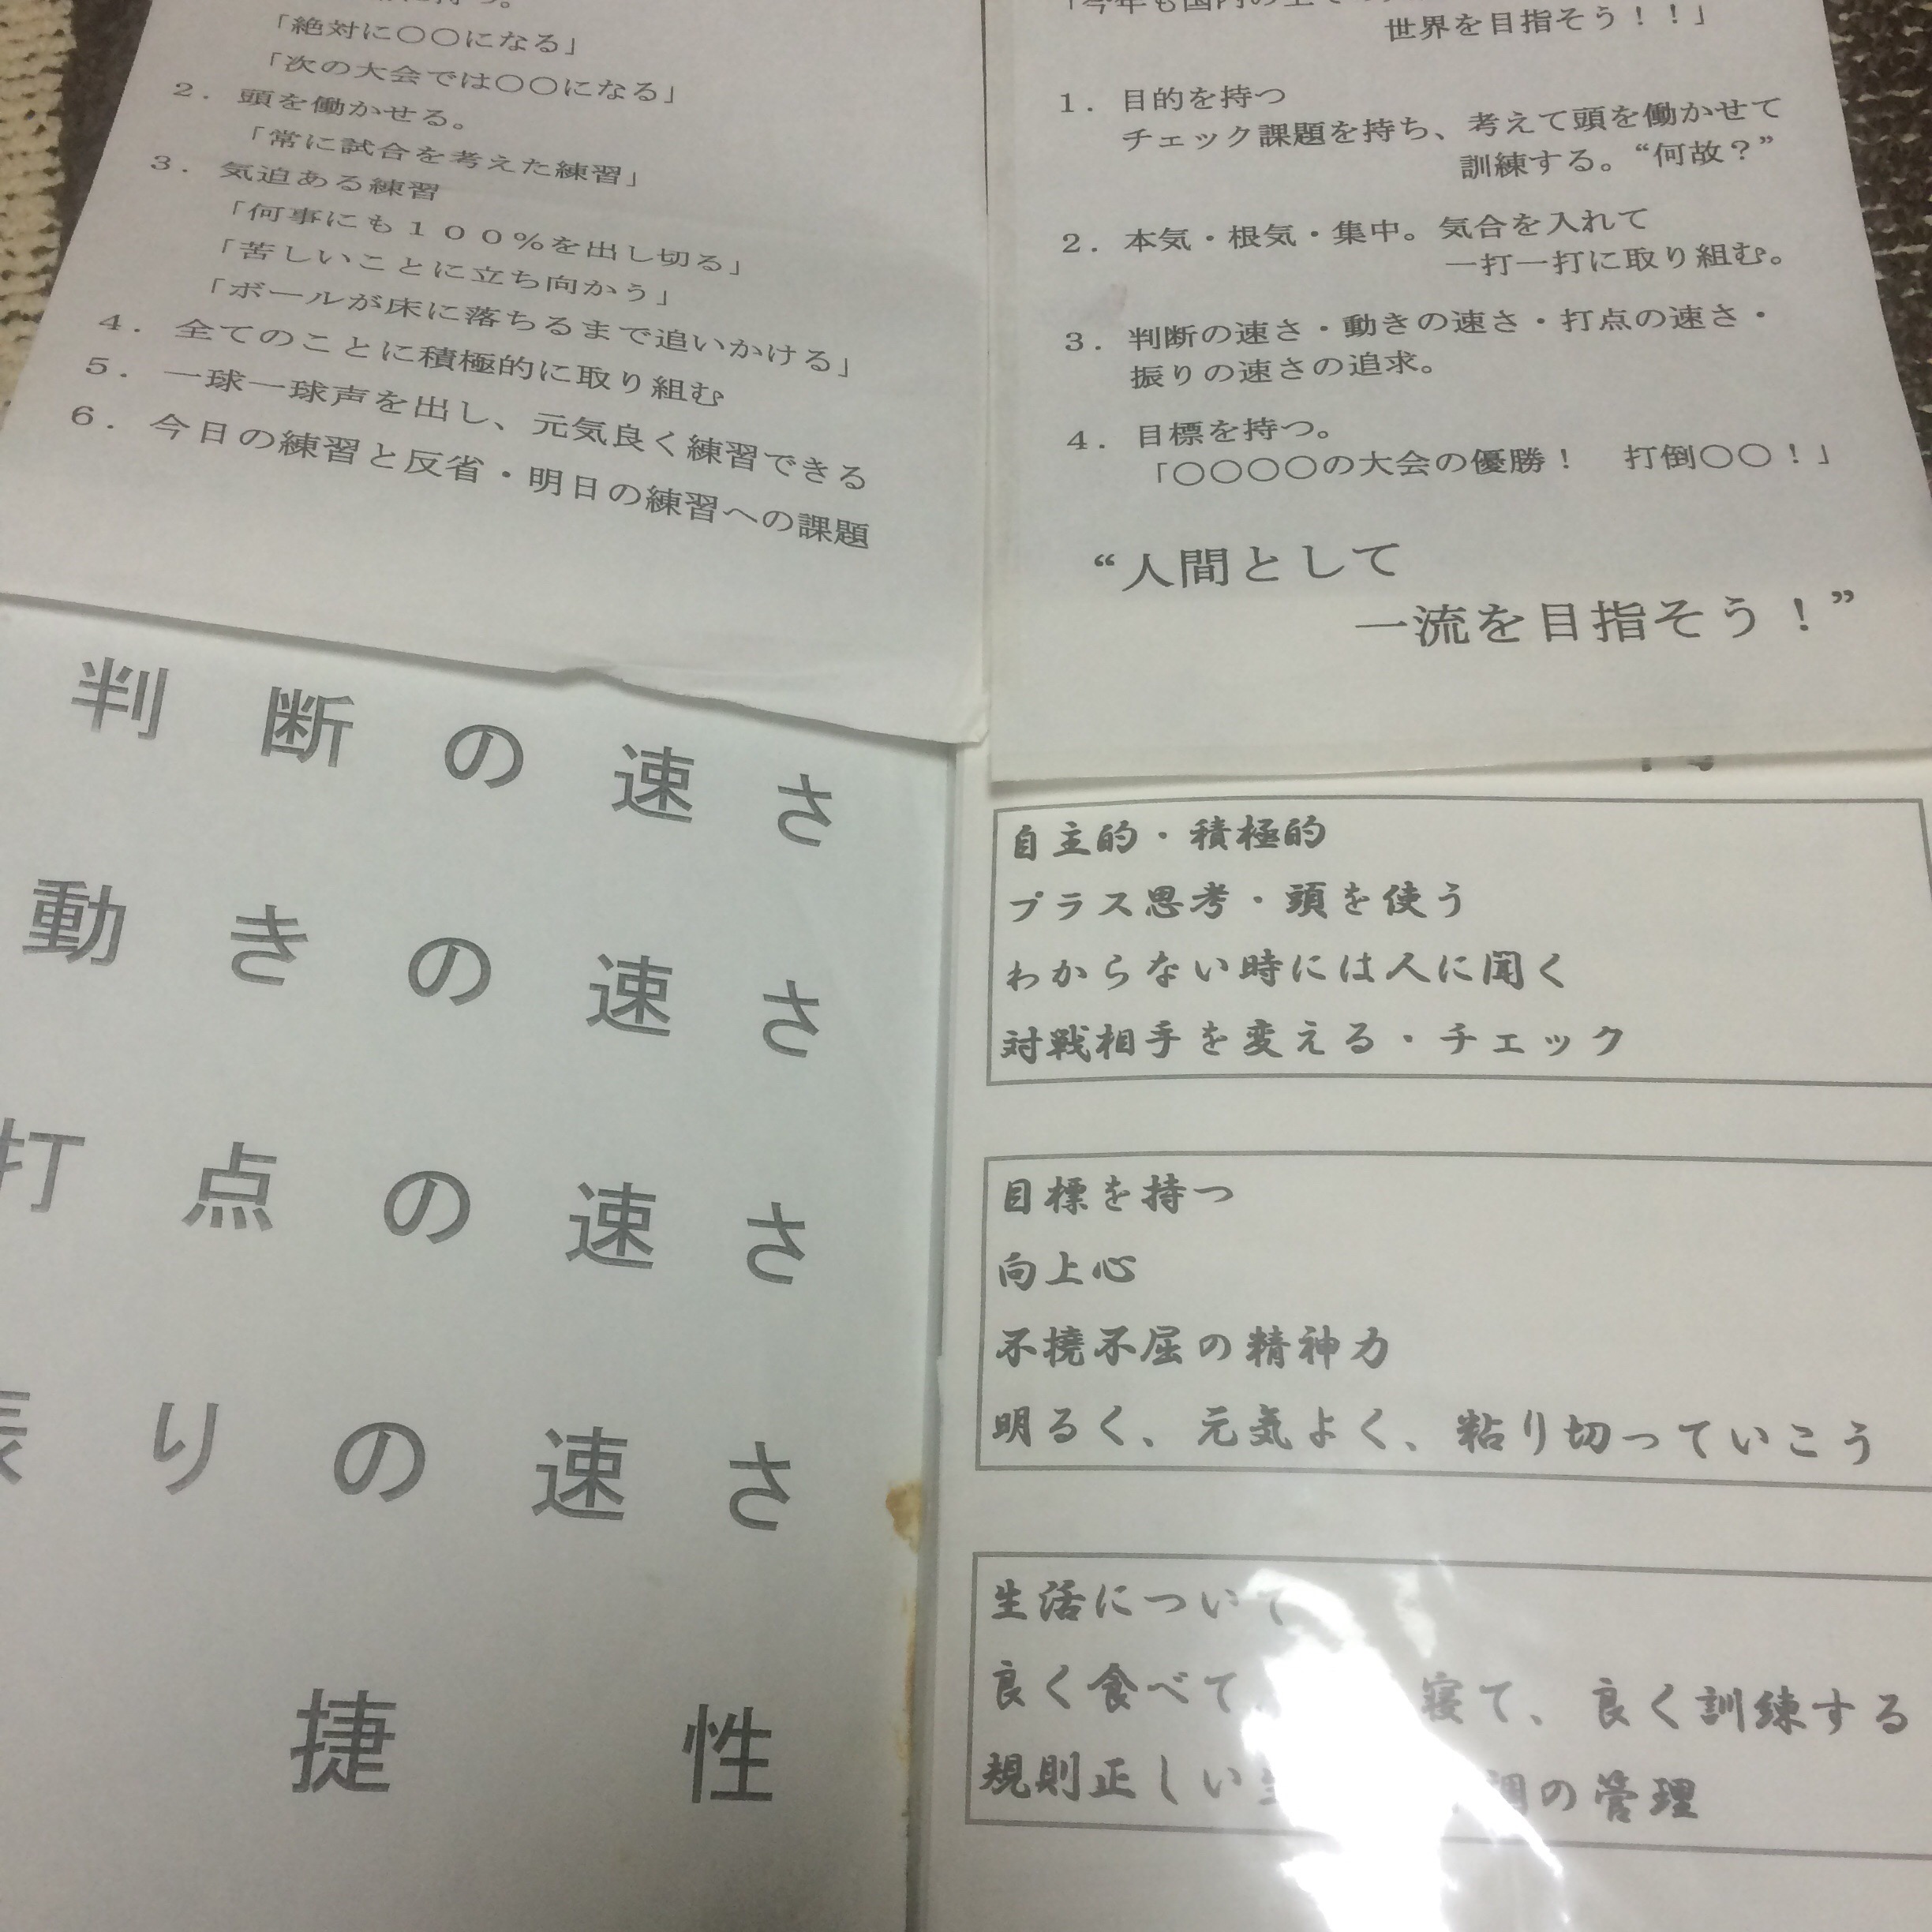 「絶対に〇〇になる」
「次の大会では〇〇になる」
2．頭を働かせる。
「常に試合を考えた練習」
3．気迫ある練習
「何事にも１００％を出し切る」
「苦しいことに立ち向かう」
「ボールが床に落ちるまで追いかける」
4．全てのことに積極的に取り組む
5．一球一球声を出し、元気良く練習できる
6．今日の練習と反省・明日の練習への課題
世界を目指そう！！」
1．目的を持つ
チェック課題を持ち、考えて頭を働かせて
訓練する。“何故？”
2．本気・根気・集中。気合を入れて
一打一打に取り組む。
3．判断の速さ・動きの速さ・打点の速さ・
振りの速さの追求。
4．目標を持つ。
「〇〇〇〇の大会の優勝！　打倒〇〇！」
“人間として
一流を目指そう！”
判断の速さ
動きの速さ
打点の速さ
りの速さ
捷性
自主的・積極的
プラス思考・頭を使う
わからない時には人に聞く
対戦相手を変える・チェック
目標を持つ
向上心
不撓不屈の精神力
明るく、元気よく、粘り切っていこう
生活について
良く食べて 寝て、良く訓練する
規則正しい 調の管理